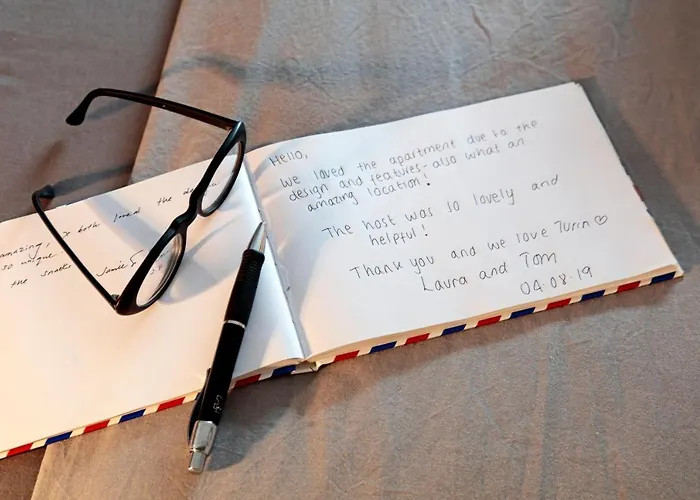 amazing! both loved the
so unique
the snacks Jamie
Hello,
We loved the apartment due to the
design and features - also what an
amazing location!
The host was so lovely and
helpful!
Thank you and we love Turin ♡
Laura and Tom
04.08.19